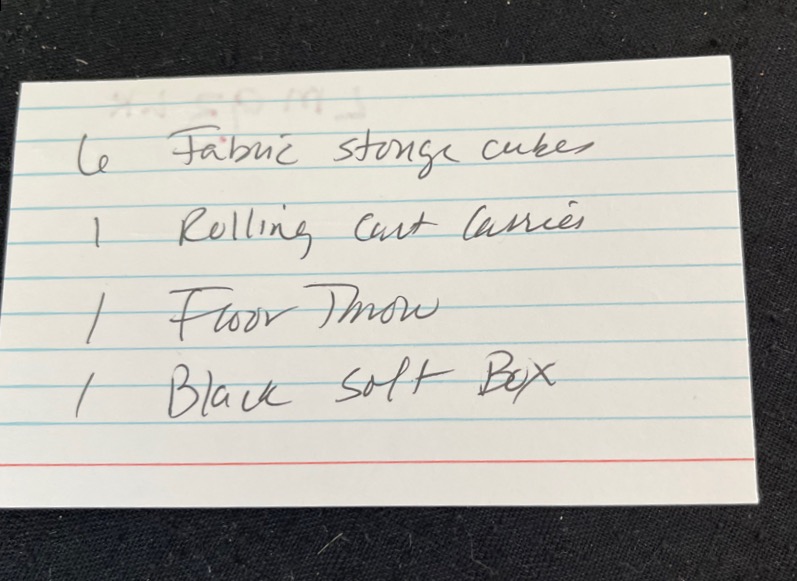 6 Fabric storge cubes
1 Rolling Cart Carrier
1 Floor Throw
1 Black Soft Box